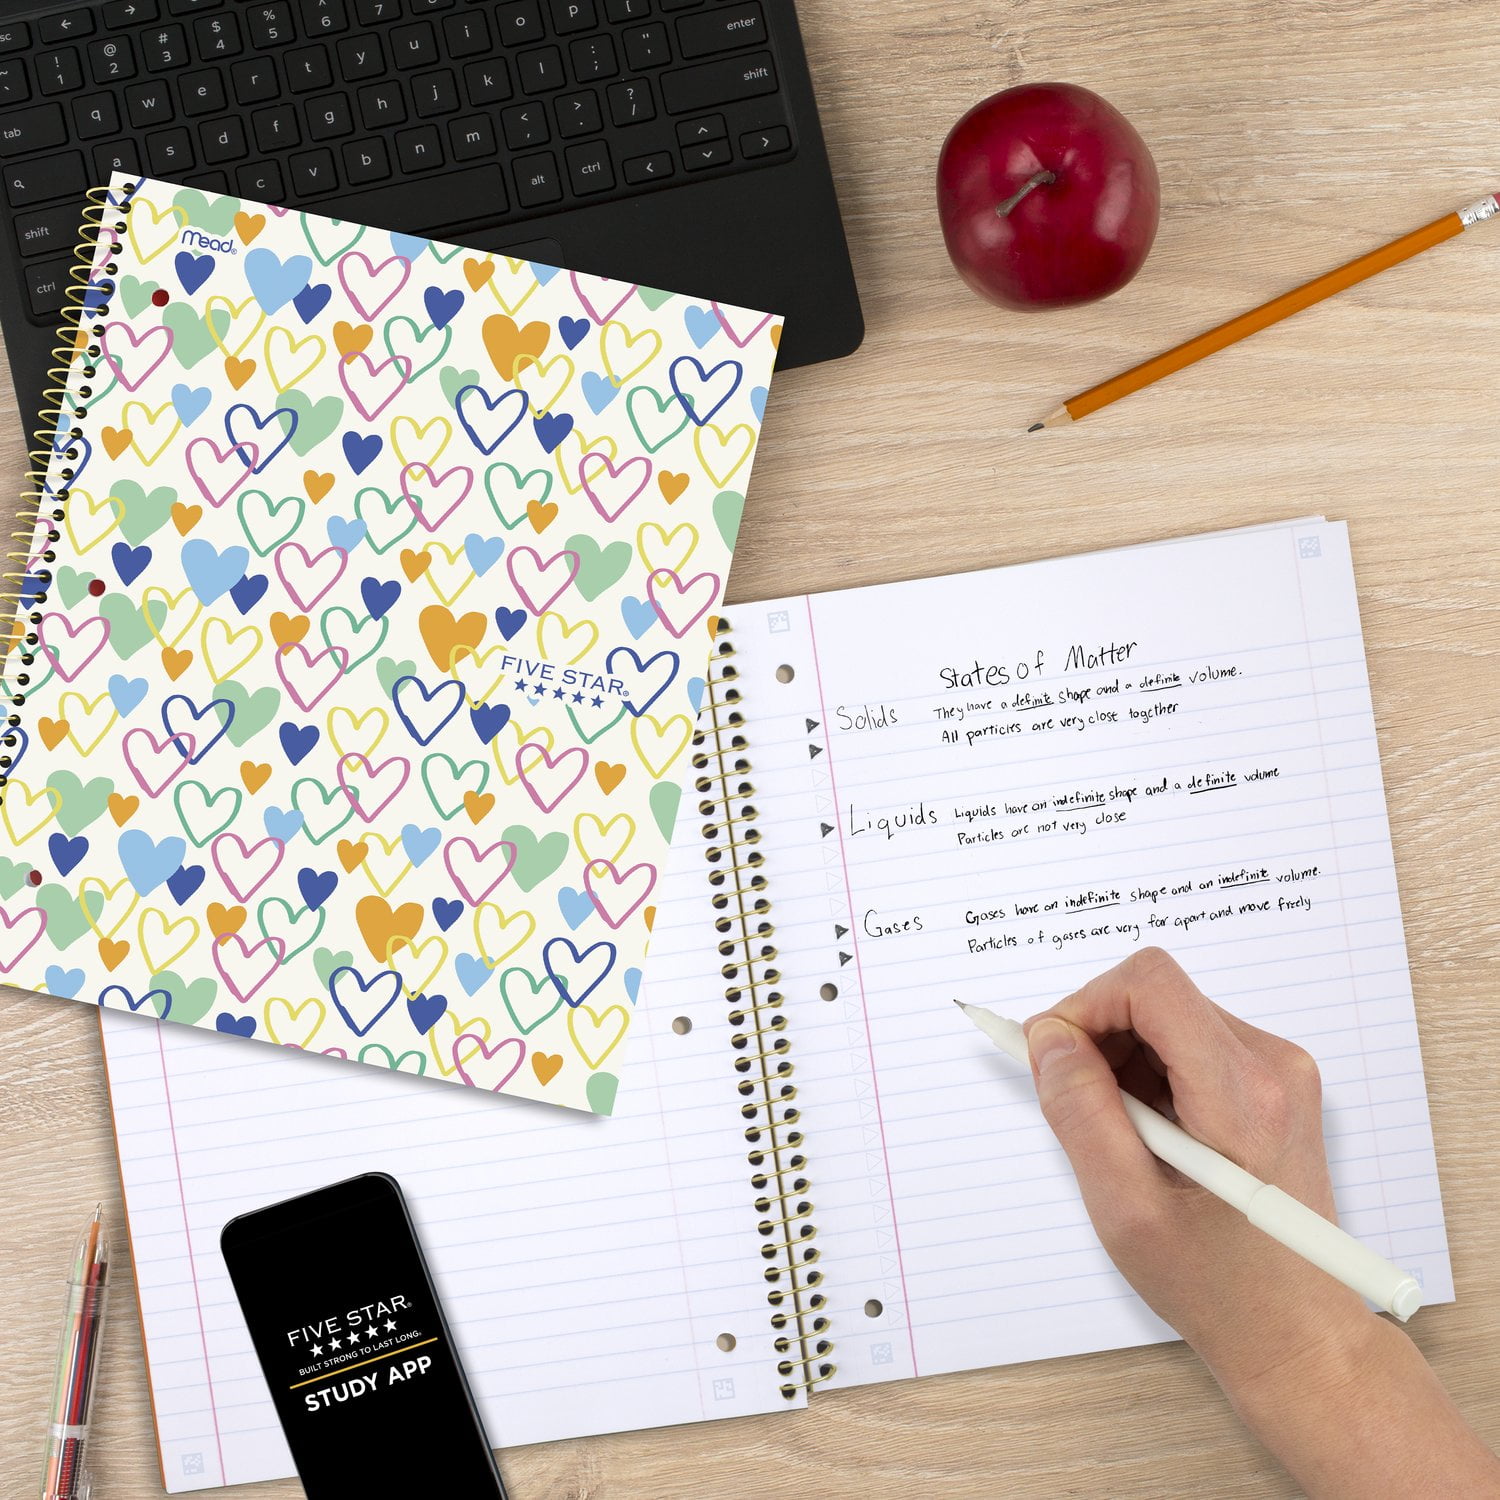 sc ← →
! 1 @ 2 # 3 $ 4 % 5 ^ 6 & 7
tab q w e r t y u i o p enter
a s d f g h j k l ; : ' " shift
shift c v b n m , < . > / ?
ctrl alt ctrl < >
Mead®
FIVE STAR®
★★★★★
States of Matter
Solids They have a definite shape and a definite volume.
All particles are very close together
Liquids Liquids have an indefinite shape and a definite volume
Particles are not very close
Gases Gases have an indefinite shape and an indefinite volume.
Particles of gases are very far apart and move freely
FIVE STAR®
★★★★★
BUILT STRONG TO LAST LONG®
STUDY APP